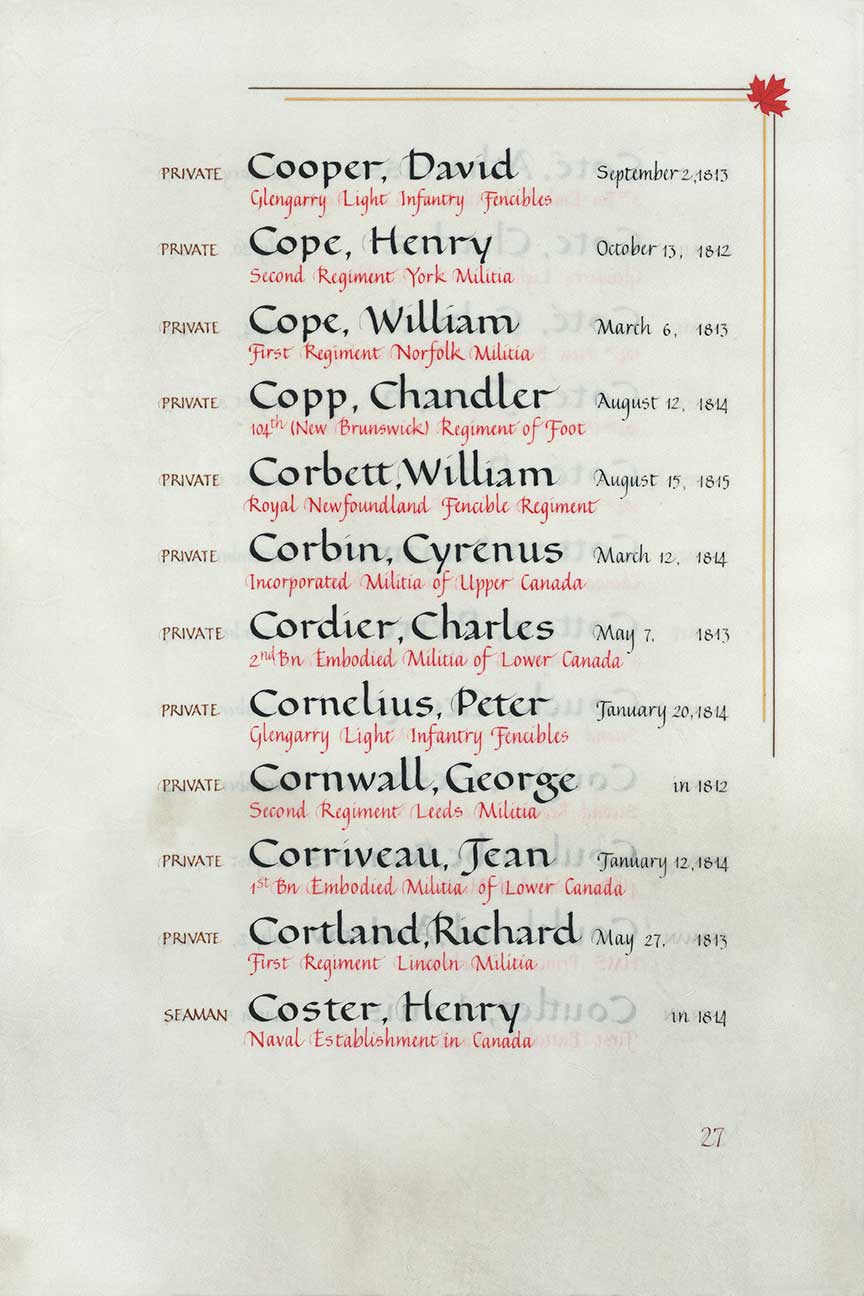 PRIVATE Cooper, David September 2, 1813
Glengarry Light Infantry Fencibles
PRIVATE Cope, Henry October 13, 1812
Second Regiment York Militia
PRIVATE Cope, William March 6, 1813
First Regiment Norfolk Militia
PRIVATE Copp, Chandler August 12, 1814
104th (New Brunswick) Regiment of Foot
PRIVATE Corbett, William August 15, 1815
Royal Newfoundland Fencible Regiment
PRIVATE Corbin, Cyrenus March 12, 1814
Incorporated Militia of Upper Canada
PRIVATE Cordier, Charles May 7, 1813
2nd Bn Embodied Militia of Lower Canada
PRIVATE Cornelius, Peter January 20, 1814
Glengarry Light Infantry Fencibles
PRIVATE Cornwall, George in 1812
Second Regiment Leeds Militia
PRIVATE Corriveau, Jean January 12, 1814
1st Bn Embodied Militia of Lower Canada
PRIVATE Cortland, Richard May 27, 1813
First Regiment Lincoln Militia
SEAMAN Coster, Henry in 1814
Naval Establishment in Canada
27